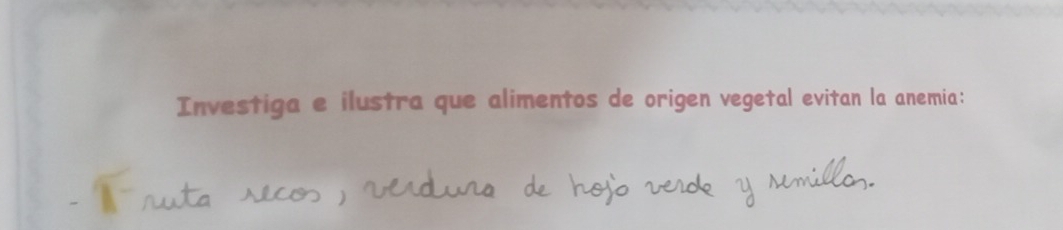 Investiga e ilustra que alimentos de origen vegetal evitan la anemia:
- Fruta secos, verdura de hoja verde y semillas.